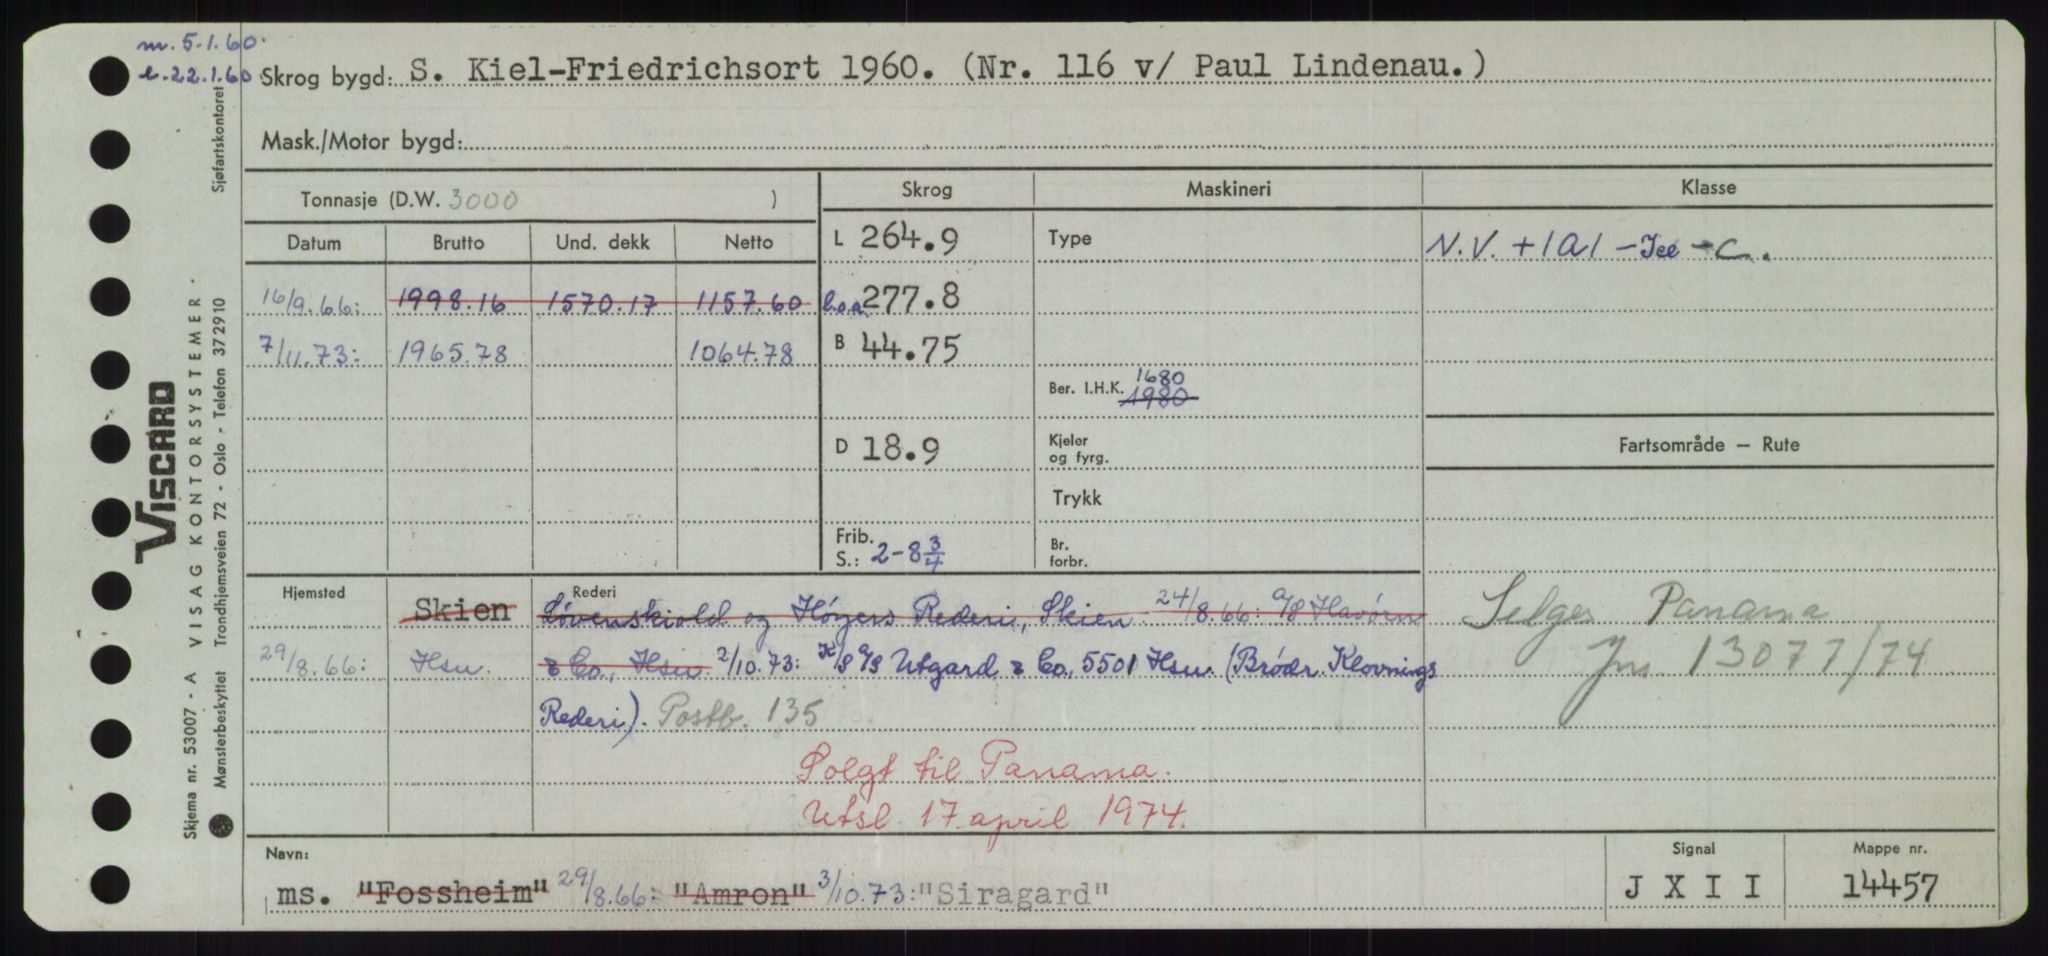 m. 5.1.60.
l. 22.1.60
Skrog bygd: S. Kiel-Friedrichsort 1960. (Nr. 116 v/ Paul Lindenau.)
Mask./Motor bygd:
Tonnasje (D.W. 3000 )
Skrog
Maskineri
Klasse
Datum Brutto Und. dekk Netto
L 264.9
Type
N.V. + 1A1 - Ice - C.
16/9.66: 1998.16 1570.17 1157.60
l.o.a. 277.8
7/11.73: 1965.78 1064.78
B 44.75
Ber. I.H.K. 1680
1980
D 18.9
Kjeler
og fyrg.
Fartsområde — Rute
Trykk
Frib.
S.: 2-8 3/4
Br.
forbr.
Hjemsted
Rederi
Skien Løvenskiold og Høyers Rederi, Skien 24/8.66: A/S Havørn
29/8.66: Hsu. & Co., Hsu. 2/10.73: K/S A/S Utgard & Co., 5501 Hsu. (Brødr. Klovnings
Rederi). Postb. 135
Selges Panama
Jnr. 13077/74
Solgt til Panama.
Utsl. 17 april 1974.
Navn:
Signal
Mappe nr.
ms. "Fossheim" 29/8.66: "Amron" 3/10.73: "Siragard"
J X I I
14457
VISCARD
Skjema nr. 53007 - A VISAG KONTORSYSTEMER -
Mønsterbeskyttet Trondhjemsveien 72 - Oslo - Telefon 372910 Sjøfartskontoret